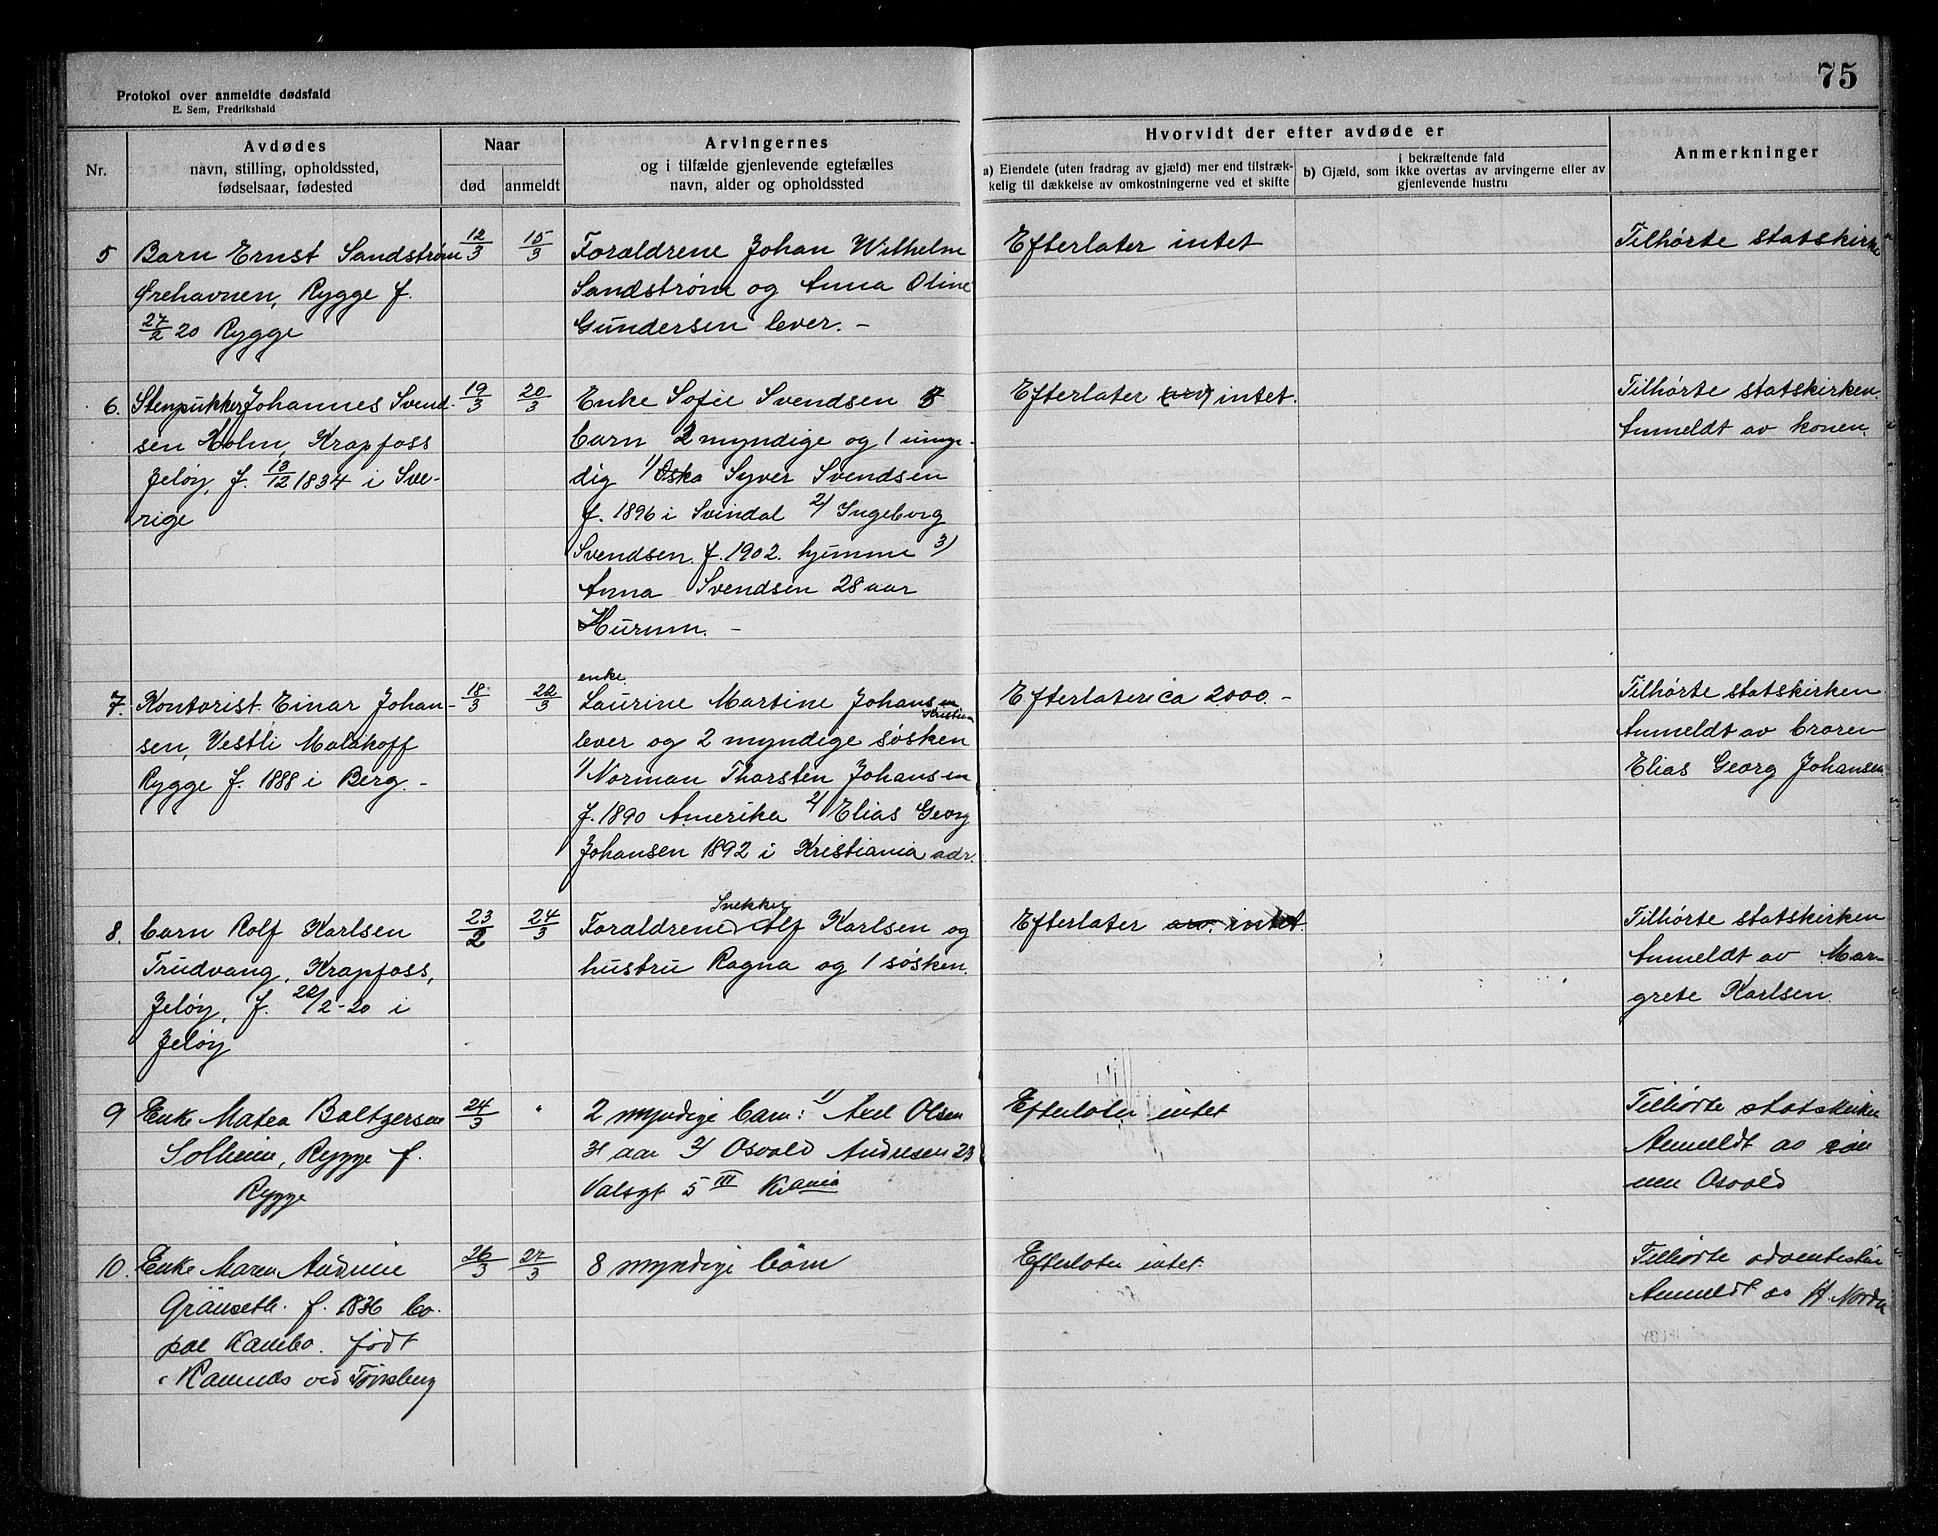 75
Protokol over anmeldte dødsfald
E. Sem, Fredrikshald
Nr.
Avdødes
navn, stilling, opholdssted,
fødselsaar, fødested
Naar
død
anmeldt
Arvingernes
og i tilfælde gjenlevende egtefælles
navn, alder og opholdssted
Hvorvidt der efter avdøde er
a) Eiendele (uten fradrag av gjæld) mer end tilstræk-
kelig til dækkelse av omkostningerne ved et skifte
i bekræftende fald
b) Gjæld, som ikke overtas av arvingerne eller av
gjenlevende hustru
Anmerkninger
5
Barn Ernst Sandstrøm
Ørehavnen, Rygge f.
27/2 20 Rygge
12/3
15/3
Forældrene Johan Wilhelm
Sandstrøm og Anna Oline
Gundersen lever. -
Efterlater intet
Tilhørte statskirke
6.
Stenpukker Johannes Svend-
sen Holm, Krapfoss
Jeløy, f. 13/12 1834 i Sve-
rige
19/3
20/3
Enke Sofie Svendsen 3
barn 2 myndige og 1 umyn-
dig 1) Syver Svendsen
f. 1896 i Svindal 2) Ingeborg
Svendsen f. 1902. hjemme 3)
Anna Svendsen 28 aar
Hurum. -
Efterlater intet.
Tilhørte statskirken.
Anmeldt av konen.
7.
Kontorist Einar Johan-
sen, Vestli Malakoff
Rygge f. 1888 i Berg. -
18/3
22/3
enke
Laurine Martine Johansen
lever og 2 myndige søsken
1) Norman Thorsten Johansen
f. 1890 Amerika 2) Elias Georg
Johansen 1892 i Kristiania adr.
Efterlater ca 2000. -
Tilhørte statskirken
Anmeldt av broren
Elias Georg Johansen
8.
barn Rolf Karlsen
Trudvang, Krapfoss,
Jeløy, f. 22/2-20 i
Jeløy
23/2
24/3
Snekker
Forældrene Alf Karlsen og
hustru Ragna og 1 søsken.
Efterlater intet
Tilhørte statskirken
Anmeldt av Mar-
grete Karlsen.
9
Enke Matea Baltzersen
Solheim, Rygge f.
Rygge
24/3
"
2 myndige barn: 1) Axel Olsen
31 aar 2) Osvald Andresen 23
Valsgt 5 III Kania
Efterlater intet
Tilhørte statskirken
Anmeldt av søn
nen Osvald
10.
Enke Maren Andrine
f. 1836 bo-
pæl Kambo. født
i Ramnes ved Tønsberg
26/3
27/3
8 myndige børn
Efterlater intet
Tilhørte adventistn
Anmeldt av H. Nordli